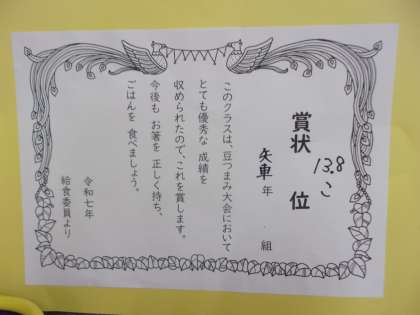 賞状
13.8
こ
位
矢車 年 組
このクラスは、豆つまみ大会において
とても優秀な 成績を
収められたので、これを賞します。
今後も お箸を 正しく持ち、
ごはんを 食べましょう。
令和七年
給食委員より